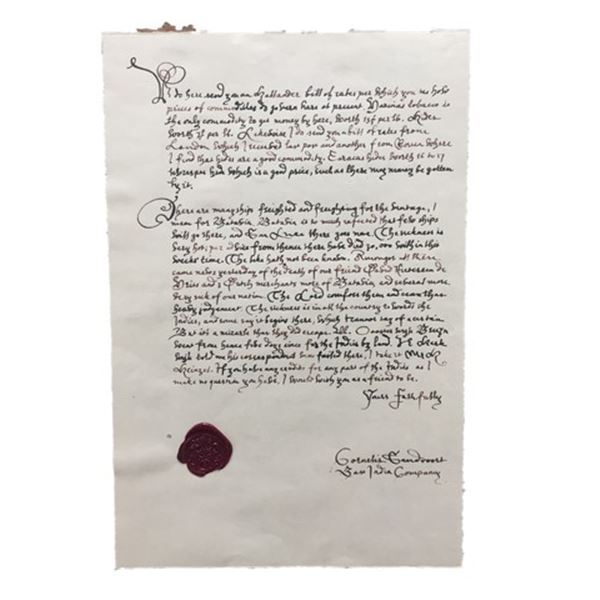 I do here send you an Hollander bill of rates per which you see how
prices of commodities do govern here at present. Varinas tobacco is
the only commodity to get money by here, worth 15f per lb. Hides
worth per lb. Likewise I do send you a bill of rates from
London which I received last post and another from Rouen where
I find that hides are a good commodity. Caracas hides worth 16 to 17
per hid which is a good price, such as there may money be gotten
by it.
There are many ships freighted and freighing for the vintage, I
mean for Batavia. Batavia is so much infected that few ships
will go there, and San Lucar there goes none. The sickness is
very hot, per advice from thence there have died 20,000 souls in this
weeks time. The like hath not been known. Amongst all these
came news yesterday of the death of our friend David Pieterson de
Vries and 3 Dutch merchants more of Batavia and several more
very sick of our nation. The Lord comfort them and cease that
heavy judgement. The sickness is in all the country towards the
Indies, and some say it begins there, which I cannot say of a certain
But it's a miracle that they did escape. All.
went from hence five days since for the Indies by land.
told me his correspondent has failed there, I take it Mr R
If you have any credits for any part of the Indies as I
make no question you have, I would wish you as a friend to be.
Yours faithfully
Cornelis Sandvoort
East India Company